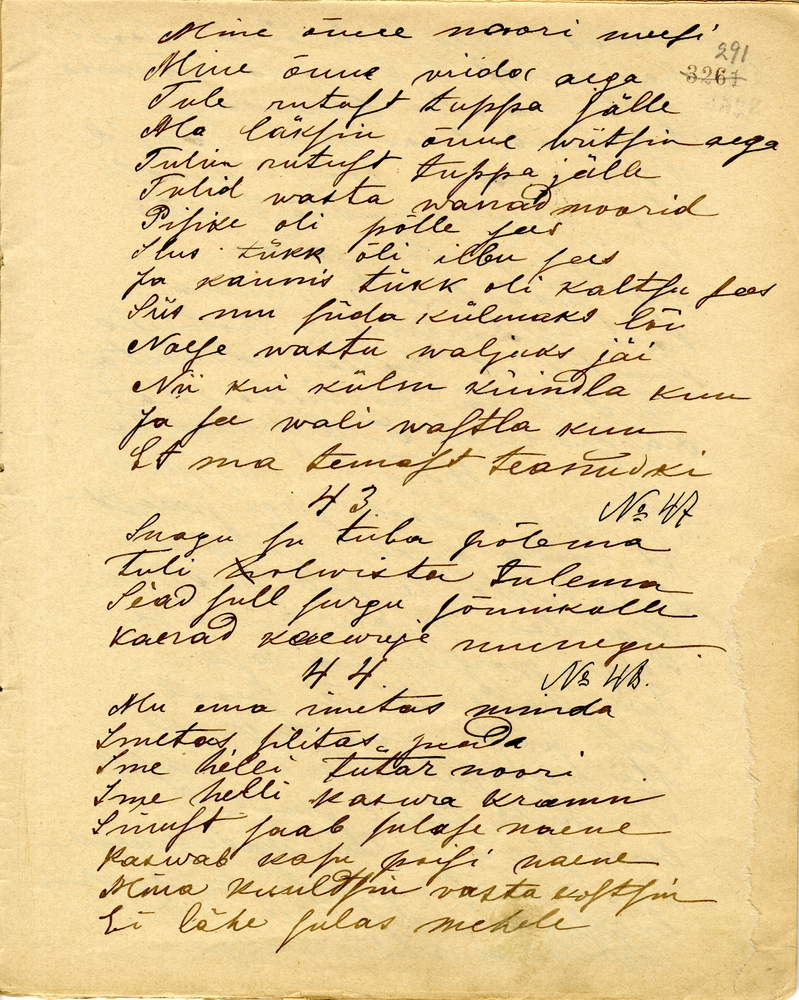 Mine õuue noori meesi
291
3261
Mine õuue viida aega
Tule rutust tuppa jälle
Ma läksin õuue wiitsin aega
Tulin rutust tuppa jälle
Tulid wasta wanad noorid
Pisike oli põlle sees
Ilus tükk õli ilbu sees
Ja kaunis tükk oli kaltsu sees
Siis mu süda külmaks lõi
Naese wastu waljuks jäi
Nii kui külm küindla kuu
Ja see wali wastla kuu
Et ma temast teanudki
43 No 47
Suagu su tuba põlema
Tuli holwista tulema
Sead sull surgu sõnnikulle
kaerad kaewuje minegu.
44 No 48.
Mu ema imetas minda
Imetas silitas peada
Ime helli tütar noori
Ime helli kaswa kramm
Sinust saab sulase naene
Kaswab kasu poisi naene
Mina kuuldsin vasta kostsin
Ei lähe sulas mehele